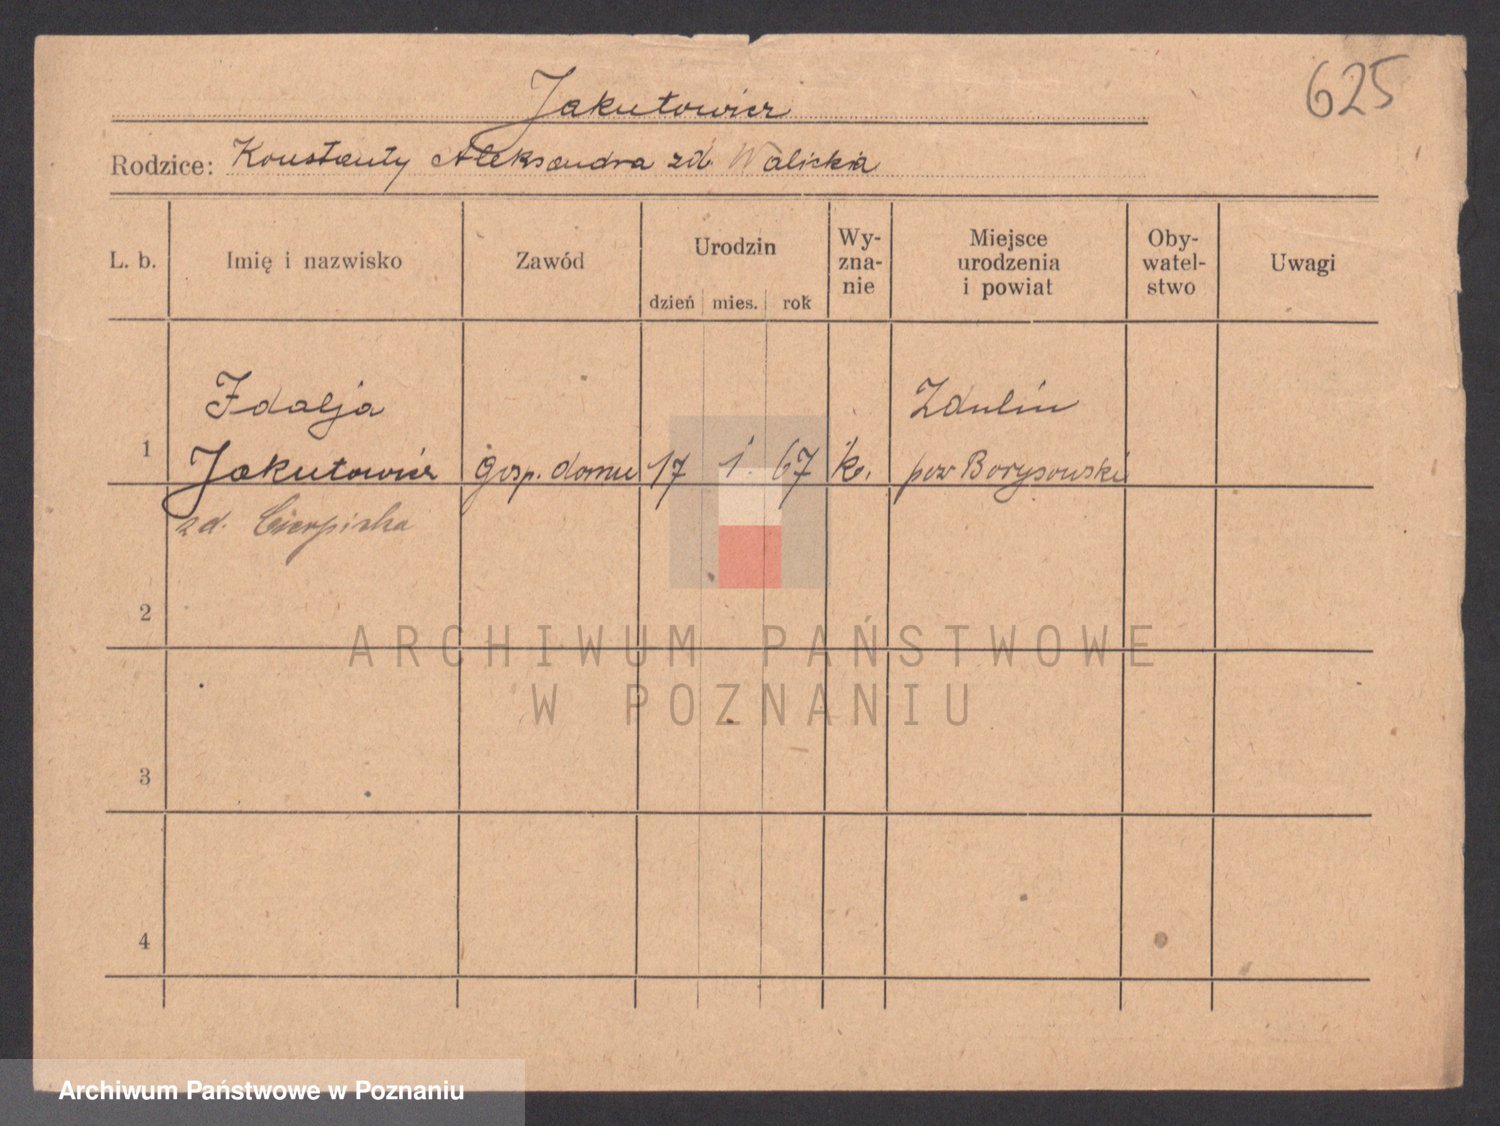 625
Jakutowicz
Rodzice: Konstanty Aleksandra zd. Walicka
L. b. Imię i nazwisko Zawód Urodzin dzień mies. rok Wy-
zna-
nie Miejsce
urodzenia
i powiat Oby-
watel-
stwo Uwagi
Idalja Zdulin
1 Jakutowicz gosp. domu 17 1 67 k. pow Borysowski
zd. Cierpicka
2
ARCHIWUM PAŃSTWOWE
W POZNANIU
3
4
Archiwum Państwowe w Poznaniu